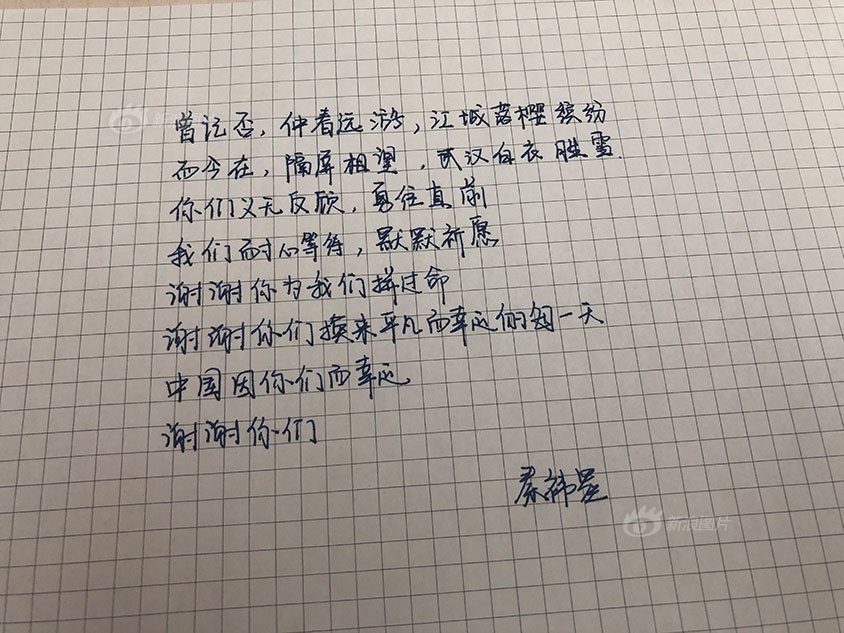 曾记否，仲春远游，江城落樱缤纷
而今在，隔屏相望，武汉白衣胜雪.
你们义无反顾，勇往直前
我们耐心等待，默默祈愿
谢谢你为我们拼过命
谢谢你们换来平凡而幸运的每一天
中国因你们而幸运
谢谢你们
秦祎星
新浪图片